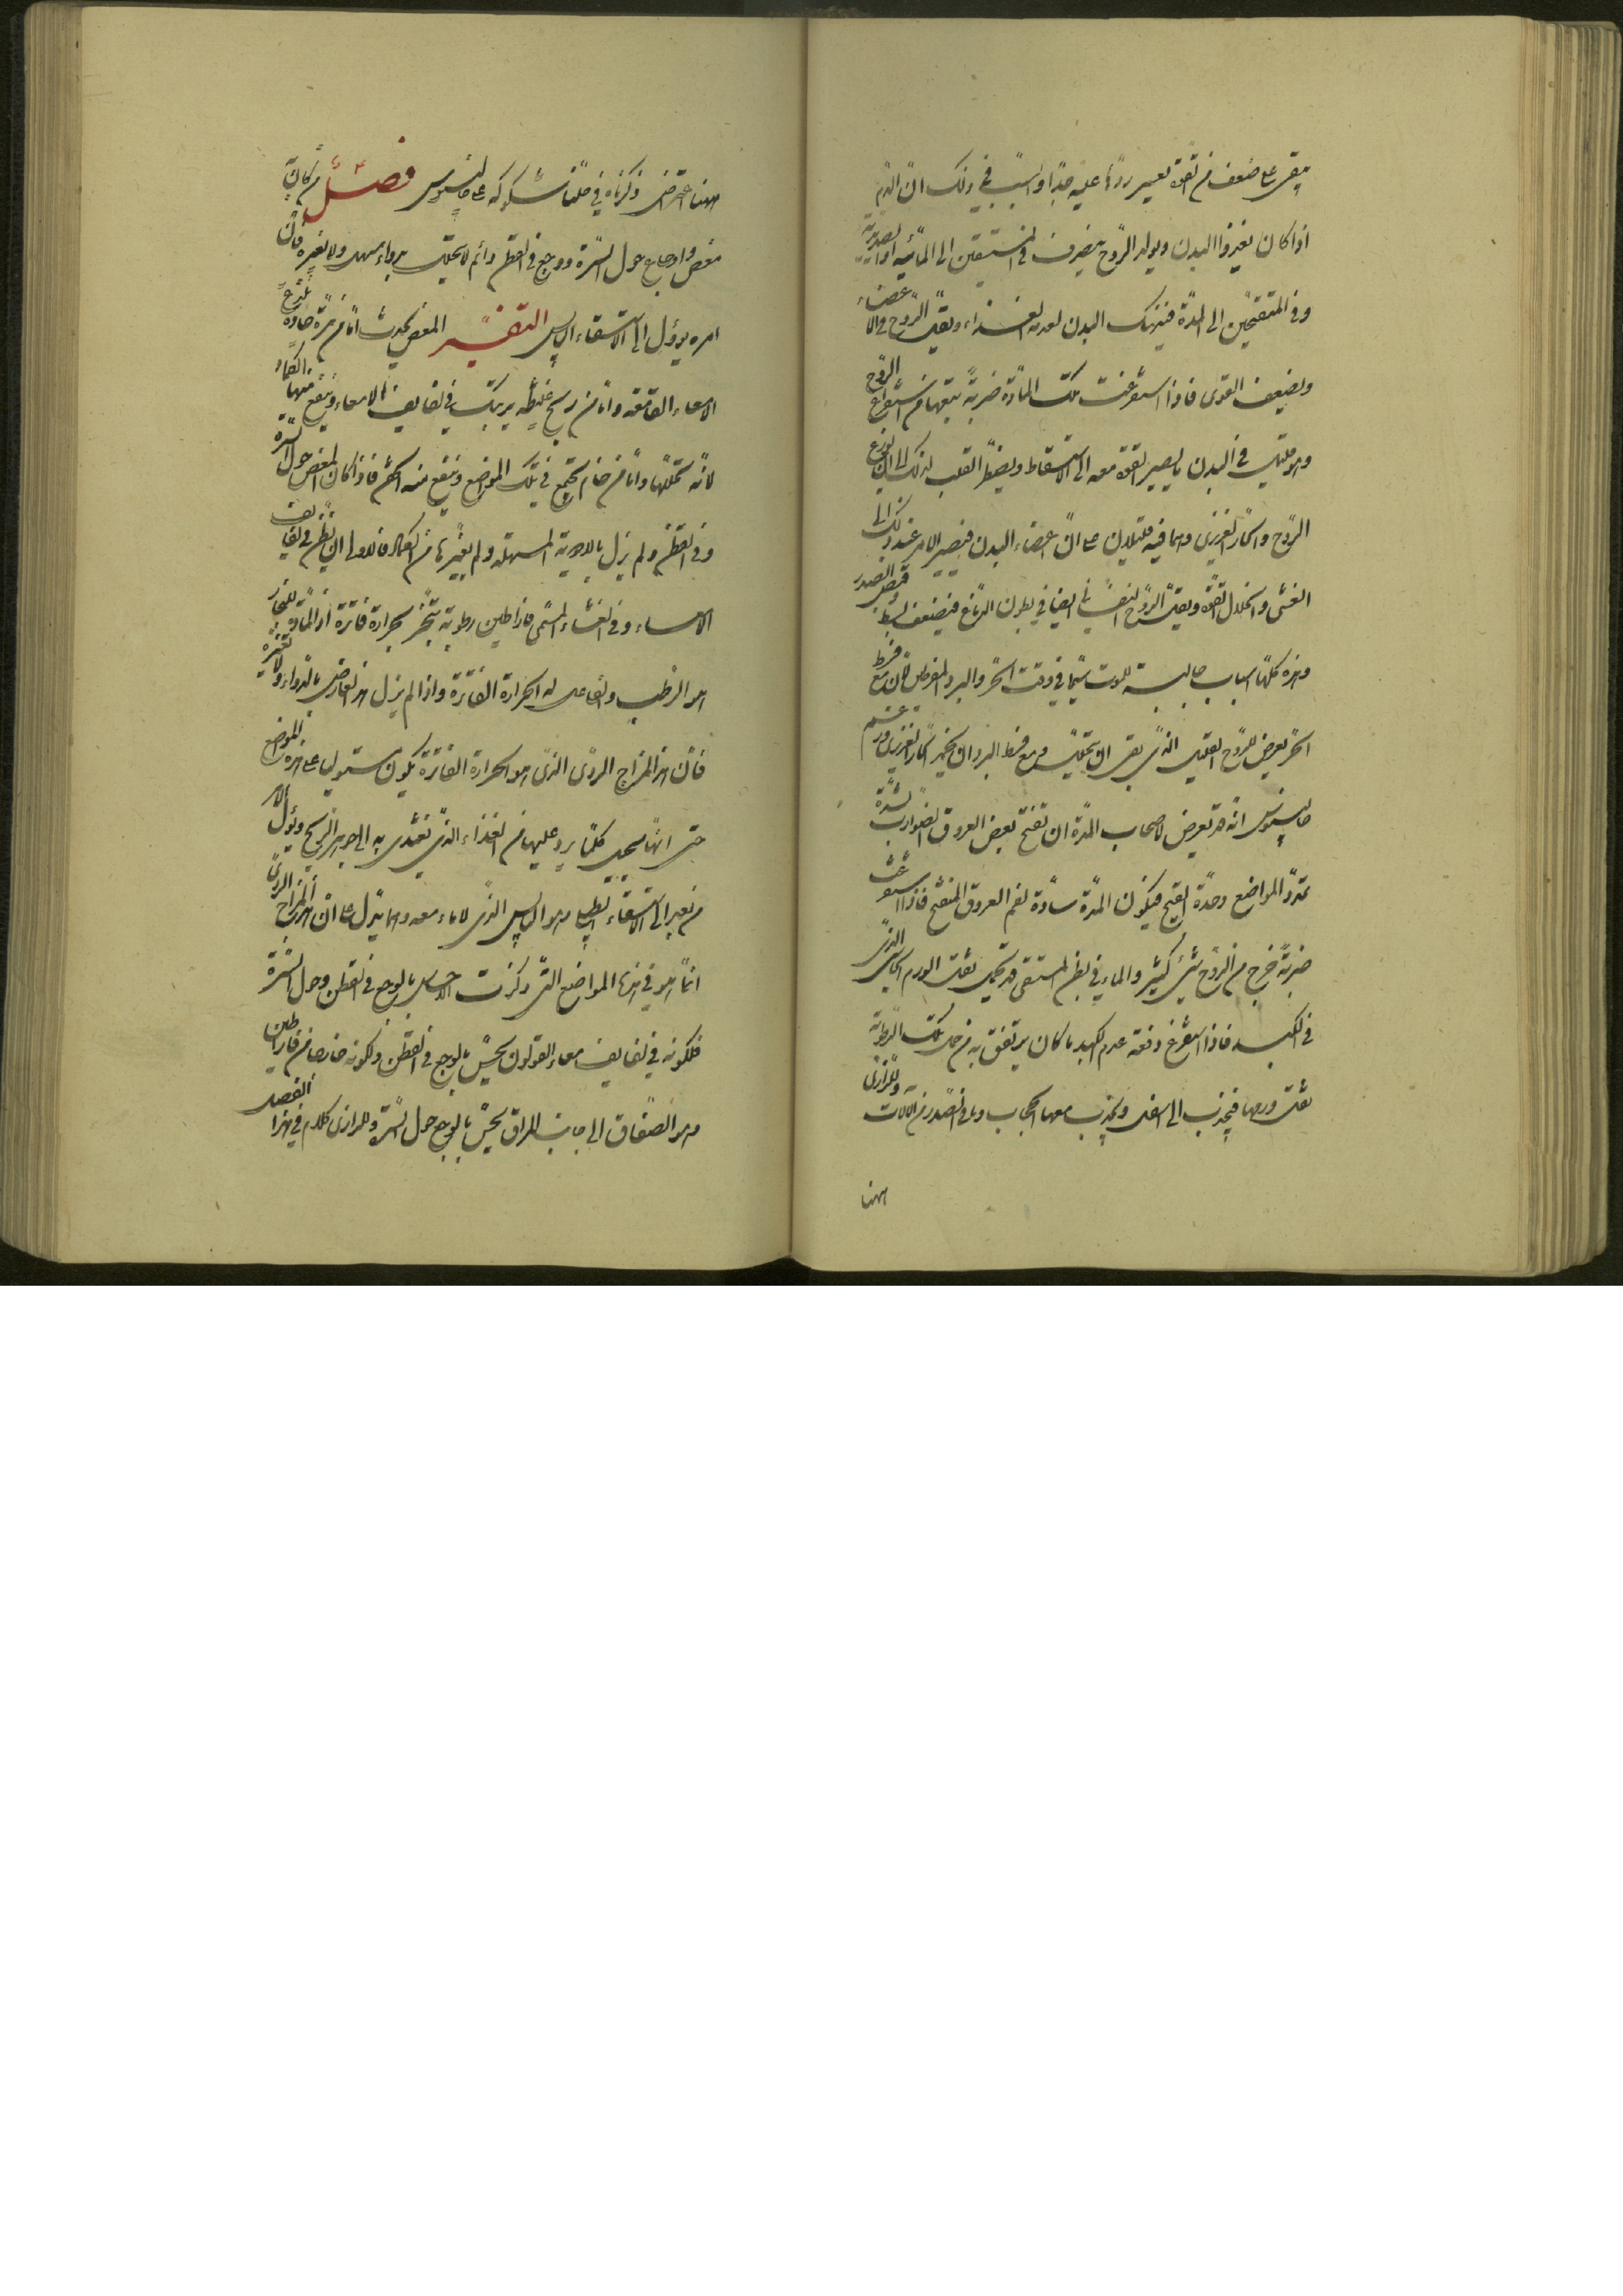 يبقى على ضعف من القوة تعسير ردّها عليه جدّا والسبب في ذلك انّ الدم
اذا كان يغذوا البدن ويولد الروح ينصرف في المستسقين الى المائية او الصديدية
وفي المتقيحين الى المدّة فينهك البدن لعدمه الغذاء ويقلّ الروح في الاعضاء
ويضعف القوى فاذا استفرغت تلك المادّة ضربة يتبعها من استفراغ الروح
وهو قليل في البدن ما يصير القوة معه الى الاسقاط ويضطرّ القلب لذلك الى ان يوزع
الروح والحارّ الغريزي وهما فيه قليلان على انّ اعضاء البدن فيصير الامر عند ذلك الى
الغشى وانحلال القوة ويقلّ الروح النفساني ايضا في بطون الدماغ فيضعف بسط وقبض الصدر
وهذه كلّها اسباب جالبة للموت سيّما في وقت الحرّ والبرد المفرط لان مع فرط
الحرّ يعرض للروح القليل الذي بقى ان يتحلل ومع فرط البرد ان يخمد الحار الغريزي وزعم
جالينوس انه قد تعرض لاصحاب المدّة ان تفتح بعض العروق الضوارب لشدّة
تمدد المواضع وحدّة القيح فيكون المدّة سادّة لفم العروق المنفتح فاذا استفرغت
ضربة خرج من الروح شئ كثير والماء في بطن المستسقى قد يحمل ثقل الورم الجاسى الذي
في الكبد فاذا استفرغ دفعة عدم الكبد ما كان يرتفق به من حمل تلك الرطوبة
ثقل ورمها فيجذب الى اسفل وينجذب معها الحجاب وما في الصدر من الآلات وللرازي
ههنا
ههنا اعتراض ذكرناه في حلّنا شكوكه على جالينوس فصل من كان به
مغص واوجاع حول السرّة ووجع في القطن دائم لا يتحلّل بدواء مسهل ولا بغيره فانّ
امره يؤول الى الاستسقاء اليابس التفسير المغص يحدث امّا من مرّة حادّة تلذع
الامعاء الفائقة وامّا من ريح غليظة يرتبك في لفايف الامعاء وينفع منها الكماد
لانّه يحللها وامّا من خام يجتمع في تلك المواضع وينفع منه الحقن فاذا كان المغص حول السرّة
وفي القطن ولم يزل بالادوية المسهلة ولم بغيرها من الكماد فالاولى ان يظن في لفايف
الامعاء وفي الغشاء المسمى فاراطين رطوبة تتبخّر بحرارة فاترة اذ المادّة للبخار
هو الرطب والفاعل له الحرارة الفاترة واذا لم يزل هذا العارض بالدواء ولا بغيره
فانّ هذا المزاج الردى الذي هو الحرارة الفاترة يكون مستوليا على هذه المواضع
حتى انها تحيل كلّما يرد عليها من الغذاء الذي تغتذي به الى جوهر الريح ويؤول الامر
من بعد الى الاستسقاء الطبلى وهو اليابس الذي لا ماء معه ومما يدل على انّ هذا المزاج الردي
انّما هو في هذه المواضع التي ذكرت الاحساس بالوجع في القطن وحول السرّة
فلكونه في لفايف معاء القولون يحسّ بالوجع في القطن ولكونه خارجا من فاراطين
وهو الصفاق الى جانب المراق يحسّ بالوجع حول السرّة وللرازي كلام في هذا الفصل